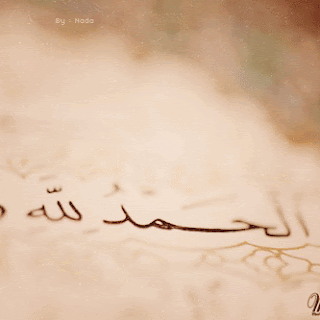 By : Nado
الحمد لله